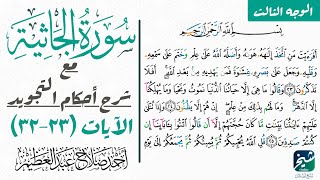 الوجه الثالث
سُورَةُ الجَاثِيَةِ
مع
شرح أحكام التجويد
الآيات (٢٣-٣٢)
أحمد صلاح عبد العظيم
بِسْمِ اللَّهِ الرَّحْمَٰنِ الرَّحِيمِ
أَفَرَءَيْتَ مَنِ ٱتَّخَذَ إِلَٰهَهُۥ هَوَىٰهُ وَأَضَلَّهُ ٱللَّهُ عَلَىٰ عِلْمٍ وَخَتَمَ عَلَىٰ سَمْعِهِۦ
وَقَلْبِهِۦ وَجَعَلَ عَلَىٰ بَصَرِهِۦ غِشَٰوَةً فَمَن يَهْدِيهِ مِنۢ بَعْدِ ٱللَّهِ أَفَلَا
تَذَكَّرُونَ ٢٣ وَقَالُوا۟ مَا هِىَ إِلَّا حَيَاتُنَا ٱلدُّنْيَا نَمُوتُ وَنَحْيَا وَمَا يُهْلِكُنَآ
إِلَّا ٱلدَّهْرُ وَمَا لَهُم بِذَٰلِكَ مِنْ عِلْمٍ إِنْ هُمْ إِلَّا يَظُنُّونَ ٢٤ وَإِذَا تُتْلَىٰ
عَلَيْهِمْ ءَايَٰتُنَا بَيِّنَٰتٍ مَّا كَانَ حُجَّتَهُمْ إِلَّآ أَن قَالُوا۟ ٱئْتُوا۟ بِـَٔابَآئِنَآ إِن
كُنتُمْ صَٰدِقِينَ ٢٥ قُلِ ٱللَّهُ يُحْيِيكُمْ ثُمَّ يُمِيتُكُمْ ثُمَّ يَجْمَعُكُمْ